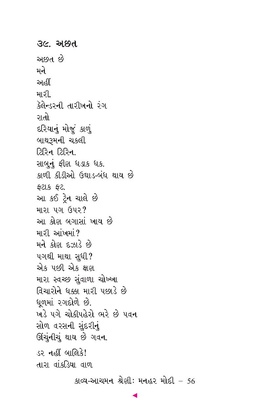 ૩૯. અછત
અછત છે
મને
અહીં
મારી.
કેલેન્ડરની તારીખનો રંગ
રાતો
દરિયાનું મોજું કાળું
બાથરૂમની ચકલી
ટિરિન ટિરિન.
સાબુનું ફીણ ધડાક ધક.
કાળી કીડીઓ ઉઘાડ-બંધ થાય છે
ફટાક ફટ.
આ કઈ ટ્રેન ચાલે છે
મારા પગ ઉપર?
આ કોણ બગાસાં ખાય છે
મારી આંખમાં?
મને કોણ દઝાડે છે
પગથી માથા સુધી?
એક પછી એક ક્ષણ
મારા સ્વચ્છ સુંવાળા ચોખ્ખા
વિચારોને ધક્કા મારી પછાડે છે
ધૂળમાં રગદોળે છે.
ખડે પગે ચોકીપહેરો ભરે છે પવન
સોળ વરસની સુંદરીનું
ઊંચુંનીચું થાય છે ગવન.
ડર નહીં બાલિકે!
તારા વાંકડિયા વાળ
કાવ્ય-આચમન શ્રેણી: મનહર મોદી – 56